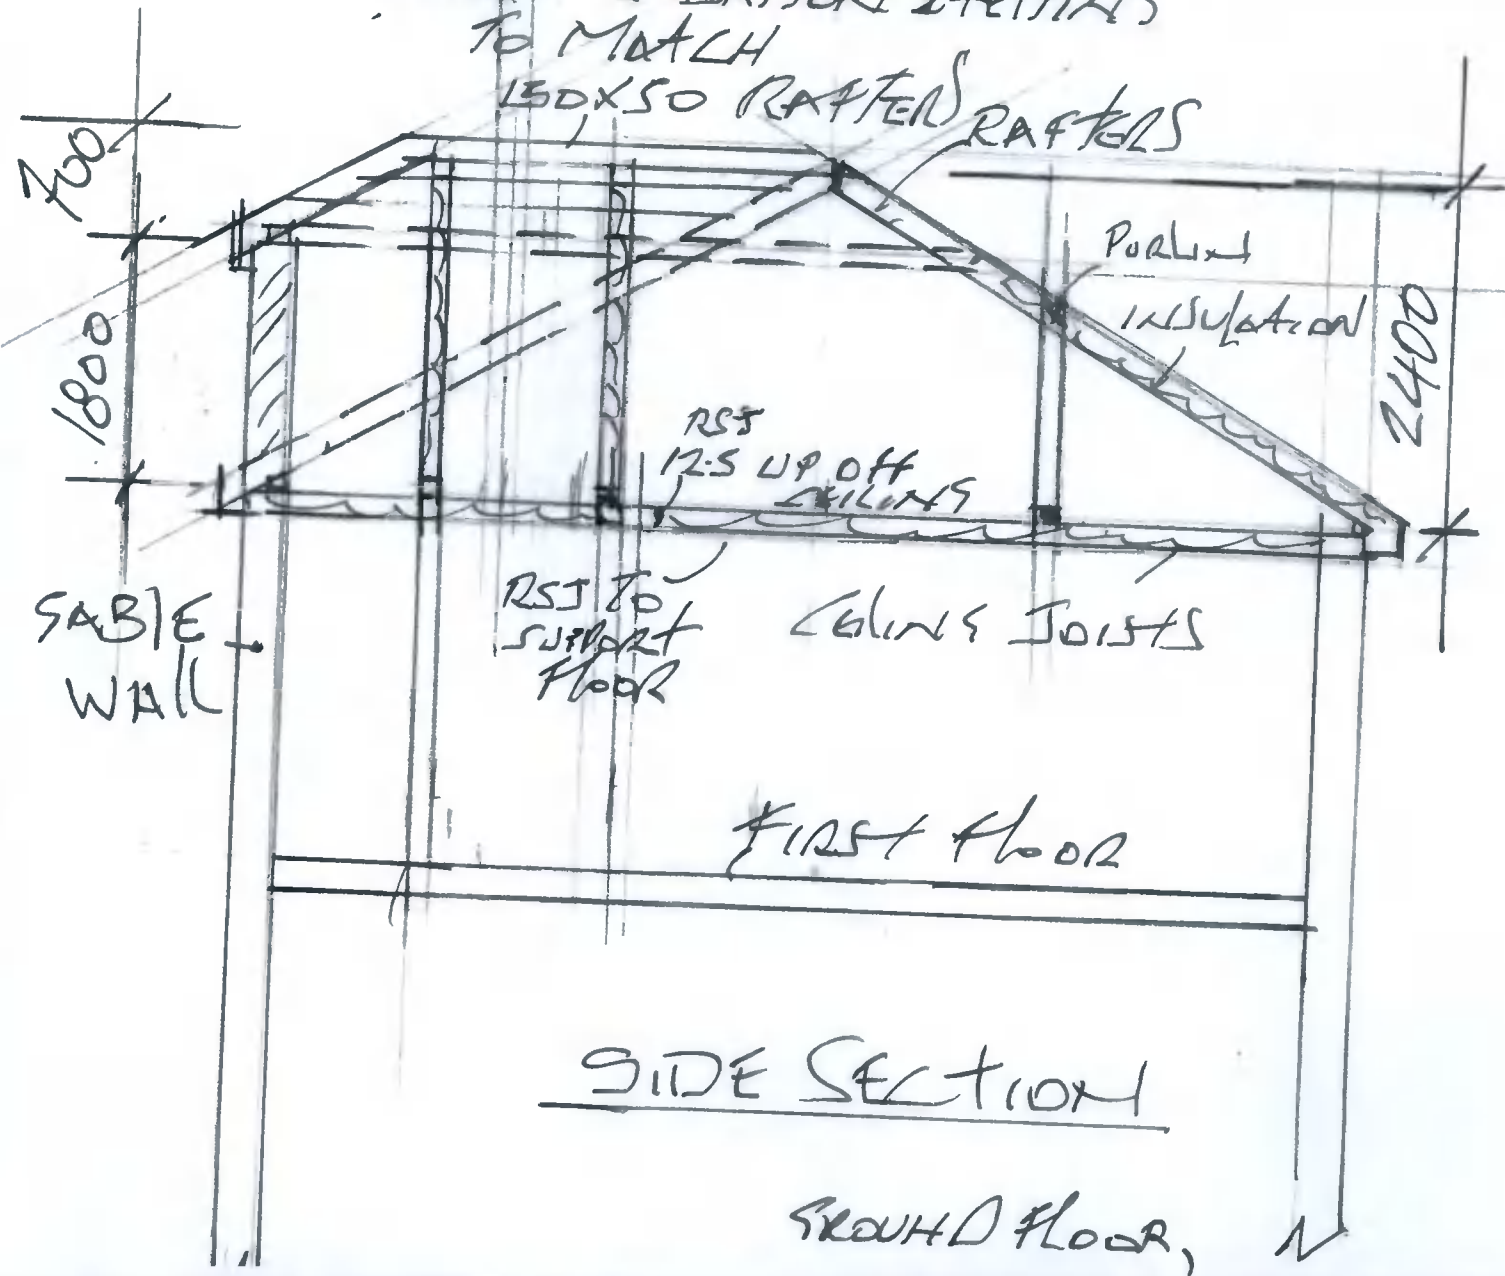 TO MATCH
150X50 RAFTERS
RAFTERS
700
PURLIN
INSULATION
1800
2400
RSJ
12.5 UP OFF
CEILING
RSJ TO
SUPPORT
FLOOR
CEILING JOISTS
GABLE
WALL
FIRST FLOOR
SIDE SECTION
GROUND FLOOR,